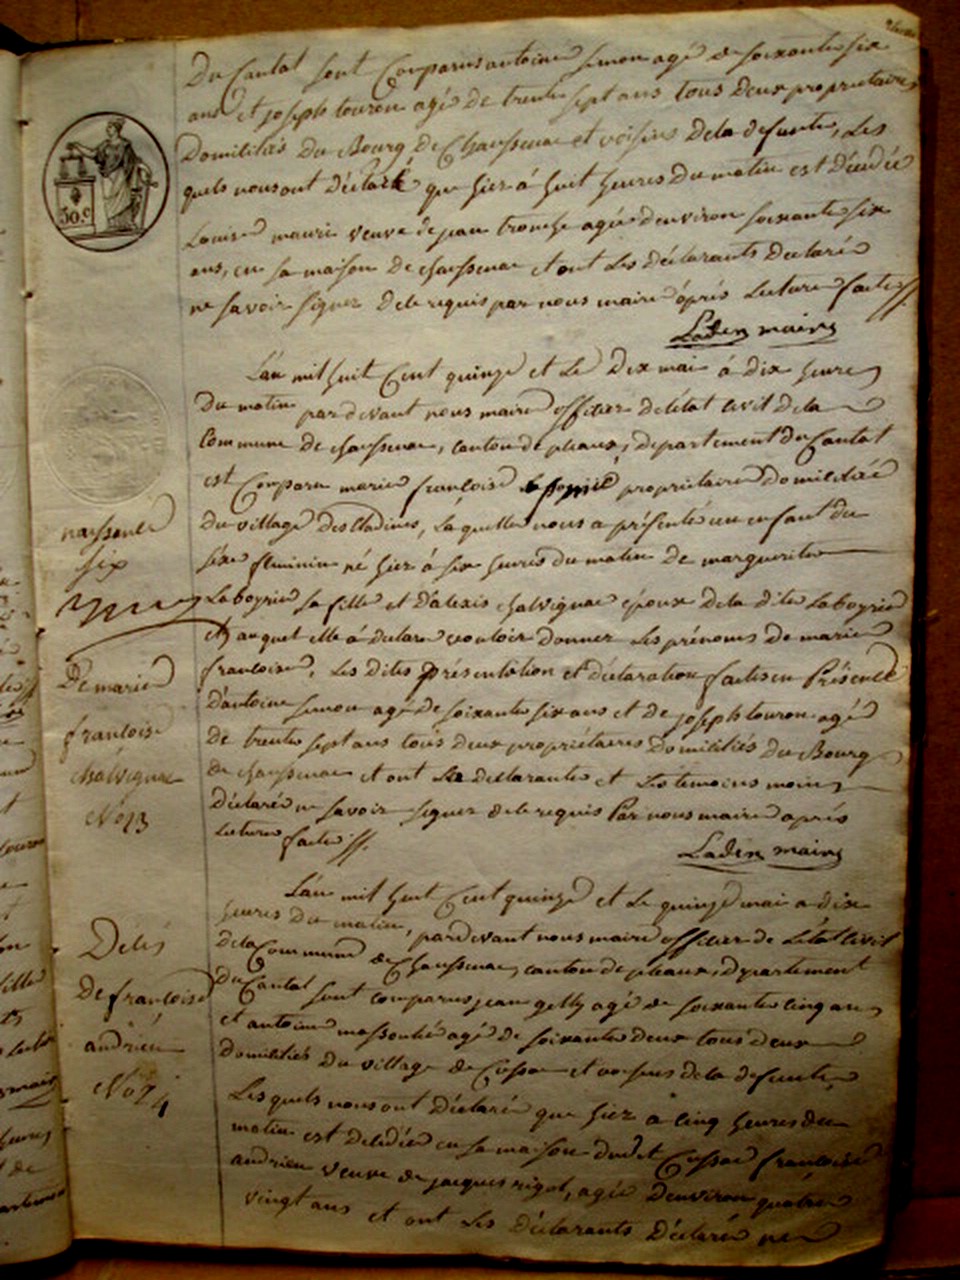 Du Cantal sont Comparus antoine simon agé de soixante six
ans et joseph touron agé de trente sept ans tous deux proprietaires
Domiliciés du Bourg de Chaussenac et voisins de la defunte, Les
quels nous ont déclaré que hier à huit heures du matin est Décédée
Louise maurie veuve de jean tronche agée d'environ soixante six
ans, en sa maison de chaussenac et ont Les déclarants declaré
ne savoir signer de le requis par nous maire après Lecture faite
30.c
L'an mil huit Cent quinze et Le Dix mai à dix heures
Du matin par devant nous maire officier de létat civil de la
Commune de chaussenac, canton de pleaux, departement du Cantal
est Comparu marie françoise proprietaire Domiliciée
du village des Cladines, Laquelle nous a présenté un enfant du
séxe féminin né hier à six heures du matin de marguerite
Laboyrie sa fille et d'alexis chalvignac époux de la dite Laboyrie
et auquel elle à declaré vouloir donner Les prénoms de marie
françoise, Les dites présentation et déclaration faites en Présence
d'antoine simon agé de soixante six ans et de joseph touron agé
de trente sept ans tous deux propriétaires Domiliciés du Bourg
de chaussenac et ont La declarante et Les temoins
déclaré ne savoir signer de le requis Par nous maire après
Lecture faite
naissance
six
De marie
françoise
chalvignac
No 23
L'an mil huit Cent quinze et Le quinze mai a dix
heures Du matin, par devant nous maire officier de Létat civil
de la Commune de Chaussenac, canton de pleaux, departement
du Cantal sont comparus jean gelly agé de soixante cinq ans
et antoine agé de soixante deux tous deux
domiliciés du village de Cussac et voisins de la defunte,
Les quels nous ont déclaré que hier a cinq heures du
matin est décédée en sa maison dudit Cussac françoise
andrieu veuve de jacques rigot, agée d'environ quatre
vingt ans et ont Les déclarants Déclaré ne
Décés
De françoise
andrieu
No 24